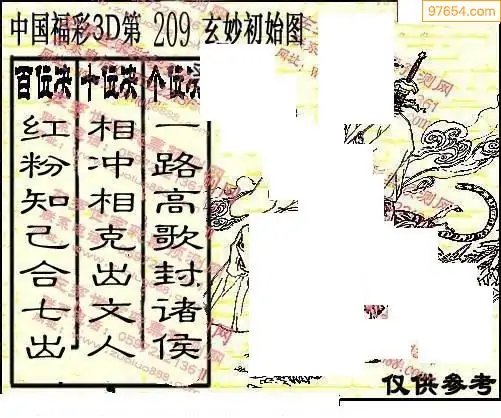 97654.com
中国福彩3D第 209 玄妙初始图
百位决 十位决 个位决
红粉知己合七出
相冲相克出文人
一路高歌封诸侯
仅供参考